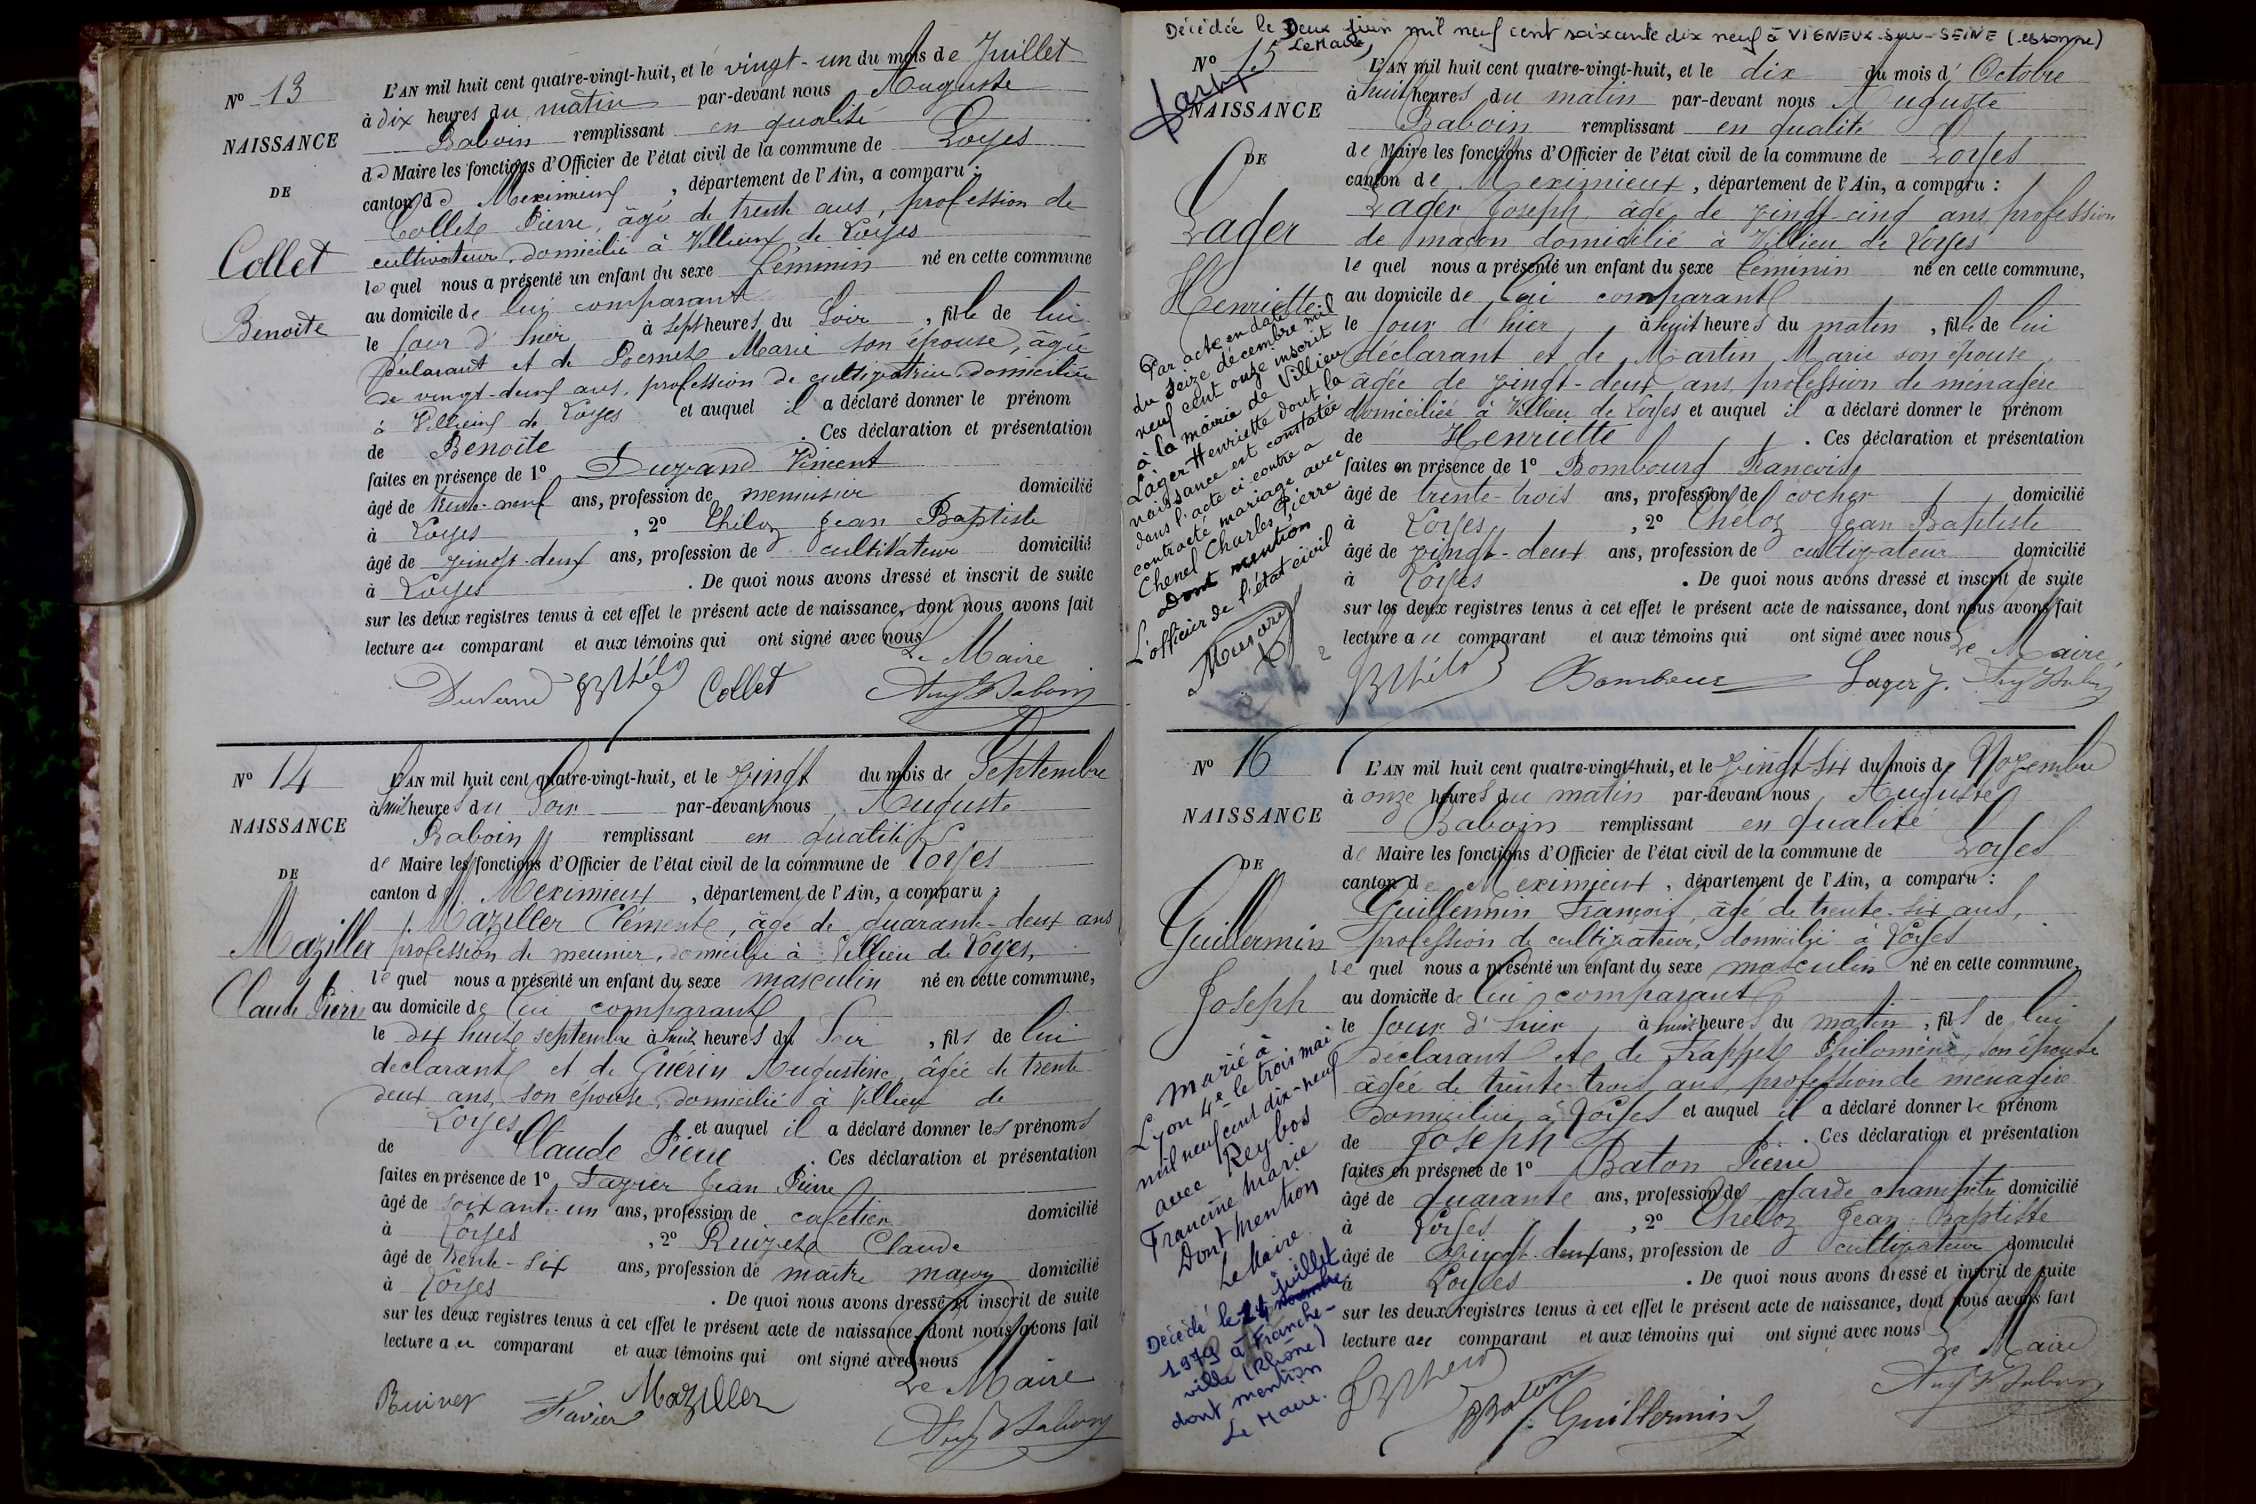 Nº 13
NAISSANCE
DE
Collet
Benoîte
L'AN mil huit cent quatre-vingt-huit, et le vingt-un du mois de Juillet
à dix heures du matin par-devant nous Auguste
Baboin remplissant en qualité
de Maire les fonctions d'Officier de l'état civil de la commune de Loyes
canton de Meximieux, département de l'Ain, a comparu :
Collet Pierre, âgé de trente ans, profession de
cultivateur, domicilié à Villieu de Loyes
lequel nous a présenté un enfant du sexe féminin né en cette commune
au domicile de lui comparant
le jour d'hier à sept heures du soir, fille de lui
déclarant et de Marie son épouse, âgée
de vingt-deux ans, profession de cultivatrice domiciliée
à Villieu de Loyes et auquel il a déclaré donner le prénom
de Benoîte. Ces déclaration et présentation
faites en présence de 1º Vincent
âgé de trente-neuf ans, profession de menuisier domicilié
à Loyes, 2º Théloz Jean Baptiste
âgé de vingt-deux ans, profession de cultivateur domicilié
à Loyes. De quoi nous avons dressé et inscrit de suite
sur les deux registres tenus à cet effet le présent acte de naissance, dont nous avons fait
lecture au comparant et aux témoins qui ont signé avec nous
Le Maire
Collet
Nº 14
NAISSANCE
DE
Maziller
Claude Pierre
L'AN mil huit cent quatre-vingt-huit, et le vingt du mois de Septembre
à huit heures du soir par-devant nous Auguste
Baboin remplissant en qualité
de Maire les fonctions d'Officier de l'état civil de la commune de Loyes
canton de Meximieux, département de l'Ain, a comparu :
Maziller Clément, âgé de quarante-deux ans
profession de meunier, domicilié à Villieu de Loyes,
lequel nous a présenté un enfant du sexe masculin né en cette commune,
au domicile de lui comparant
le dix huit septembre à huit heures du soir, fils de lui
déclarant et de Guérin Augustine âgée de trente
deux ans, son épouse, domicilié à Villieu de
Loyes et auquel il a déclaré donner les prénoms
de Claude Pierre. Ces déclaration et présentation
faites en présence de 1º Favier Jean Pierre
âgé de soixante-un ans, profession de cafetier domicilié
à Loyes, 2º Claude
âgé de trente-six ans, profession de maître maçon domicilié
à Loyes. De quoi nous avons dressé et inscrit de suite
sur les deux registres tenus à cet effet le présent acte de naissance, dont nous avons fait
lecture au comparant et aux témoins qui ont signé avec nous
Le Maire
Favier Maziller
Décédée le Deux juin mil neuf cent soixante dix neuf à VIGNEUX-sur-SEINE (essonne)
Le Maire,
Nº 15
NAISSANCE
DE
Lager
Henriette
Par acte en date
du seize décembre mil
neuf cent onze inscrit
à la mairie de Villieu
Lager Henriette dont la
naissance est constatée
dans l'acte ci contre a
contracté mariage avec
Chenel Charles Pierre
Dont mention
L'officier de l'état civil
L'AN mil huit cent quatre-vingt-huit, et le dix du mois d'Octobre
à huit heures du matin par-devant nous Auguste
Baboin remplissant en qualité
de Maire les fonctions d'Officier de l'état civil de la commune de Loyes
canton de Meximieux, département de l'Ain, a comparu :
Lager Joseph âgé de vingt cinq ans profession
de maçon domicilié à Villieu de Loyes
lequel nous a présenté un enfant du sexe féminin né en cette commune,
au domicile de lui comparant
le jour d'hier, à huit heures du matin, fille de lui
déclarant et de Martin Marie son épouse
âgée de vingt-deux ans, profession de ménagère
domiciliée à Villieu de Loyes et auquel il a déclaré donner le prénom
de Henriette. Ces déclaration et présentation
faites en présence de 1º François
âgé de trente-trois ans, profession de cocher domicilié
à Loyes, 2º Théloz Jean Baptiste
âgé de vingt-deux ans, profession de cultivateur domicilié
à Loyes. De quoi nous avons dressé et inscrit de suite
sur les deux registres tenus à cet effet le présent acte de naissance, dont nous avons fait
lecture au comparant et aux témoins qui ont signé avec nous
Le Maire,
Lager J.
Nº 16
NAISSANCE
DE
Guillermin
Joseph
marié à
Lyon 4e le trois mai
mil neuf cent dix-neuf
avec Reybos
Francine Marie
Dont mention
Le Maire
Décédé le 24 juillet
1979 à Franche-
ville (Rhône)
dont mention
Le Maire.
L'AN mil huit cent quatre-vingt-huit, et le vingt-six du mois de Novembre
à onze heures du matin par-devant nous Auguste
Baboin remplissant en qualité
de Maire les fonctions d'Officier de l'état civil de la commune de Loyes
canton de Meximieux, département de l'Ain, a comparu :
Guillermin François, âgé de trente-six ans,
profession de cultivateur, domicilié à Loyes
lequel nous a présenté un enfant du sexe masculin né en cette commune,
au domicile de lui comparant
le jour d'hier, à huit heures du matin, fils de lui
déclarant et de Frappet Philomène, son épouse
âgée de trente-trois ans, profession de ménagère
domiciliée à Loyes et auquel il a déclaré donner le prénom
de Joseph. Ces déclaration et présentation
faites en présence de 1º Baton Pierre
âgé de quarante ans, profession de garde champêtre domicilié
à Loyes, 2º Théloz Jean Baptiste
âgé de vingt-deux ans, profession de cultivateur domicilié
à Loyes. De quoi nous avons dressé et inscrit de suite
sur les deux registres tenus à cet effet le présent acte de naissance, dont nous avons fait
lecture au comparant et aux témoins qui ont signé avec nous
Le Maire
Baton Guillermin